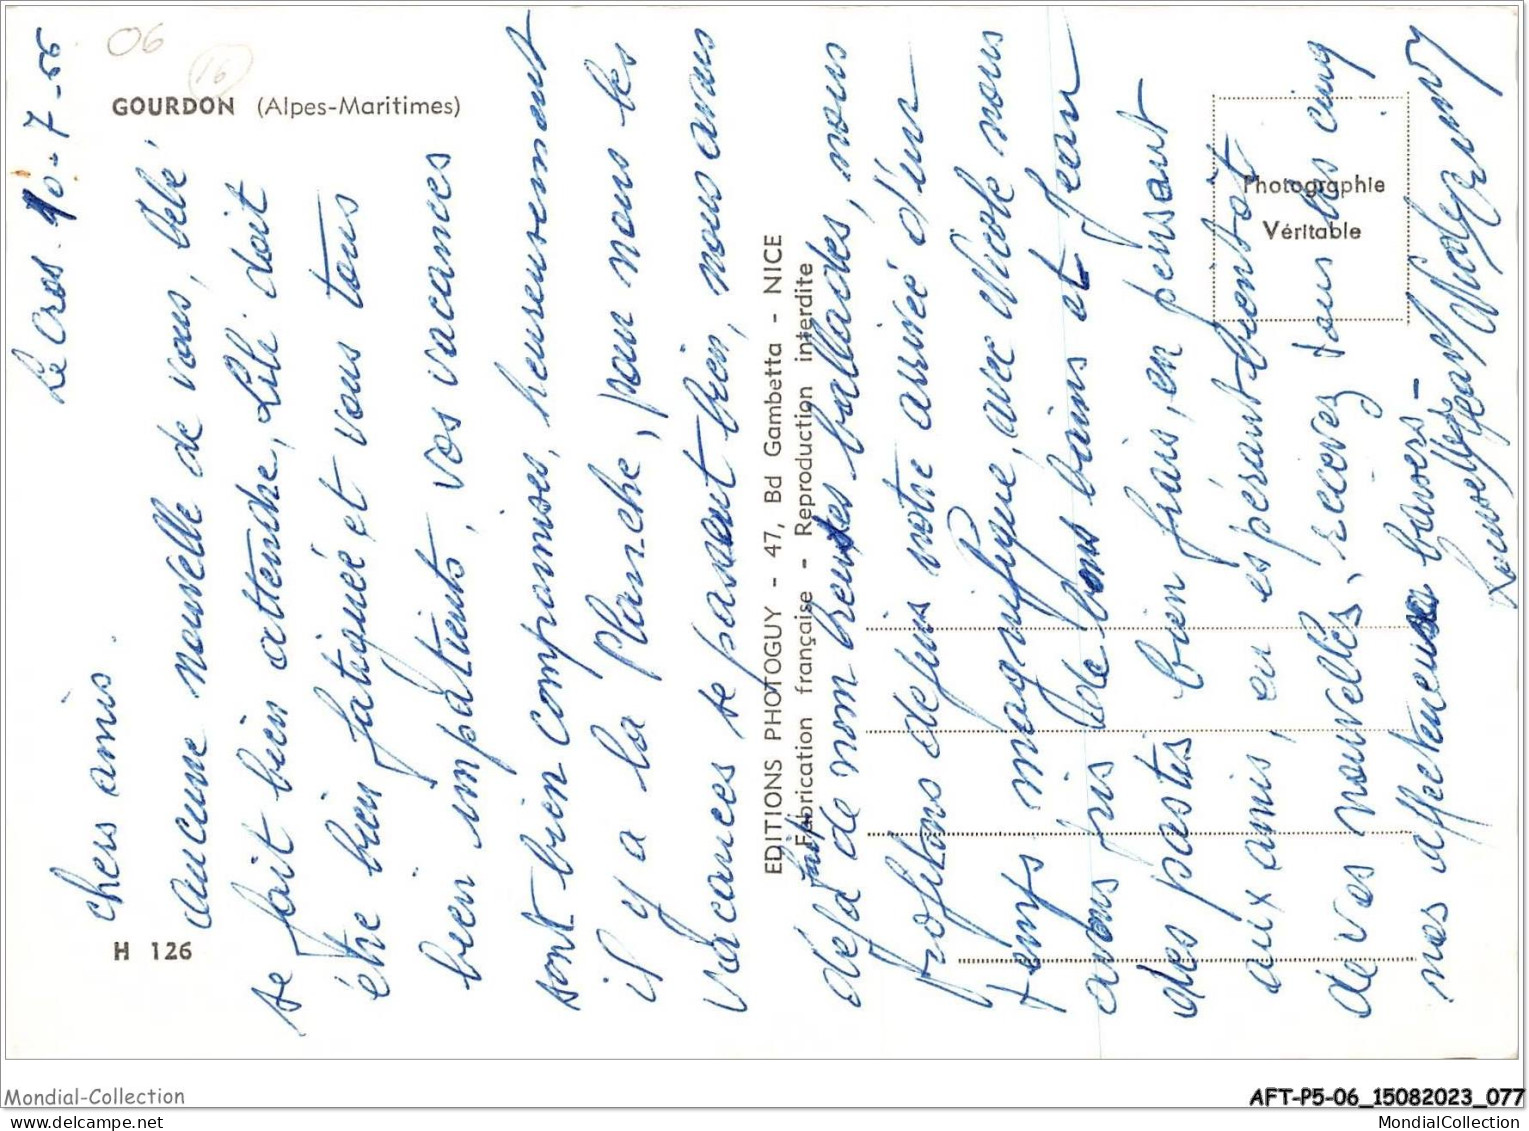 06
16
GOURDON (Alpes-Maritimes)
H 126
EDITIONS PHOTOGUY - 47, Bd Gambetta - NICE
Fabrication française - Reproduction interdite
Photographie
Véritable
Le Cros 10-7-66
Chers amis.
aucune nouvelle de vous, bébé
se fait bien attendre, Lili doit
être bien fatiguée et vous tous
bien impatients, vos vacances
sont bien compromises, heureusement
il y a la Planche, pour nous les
vacances se passent bien, nous avons
déjà fait de nombreuses ballades, nous
profitons depuis notre arrivée d'un
temps magnifique, avec Nicole nous
avons pris de bons bains et Jean
des pastis bien frais, en pensant
aux amis, en espérant bientôt
de vos nouvelles, recevez tous les cinq
nos affectueux baisers-
Jean Nicole
Mondial-Collection
AFT-P5-06_15082023_077
www.delcampe.net
MondialCollection